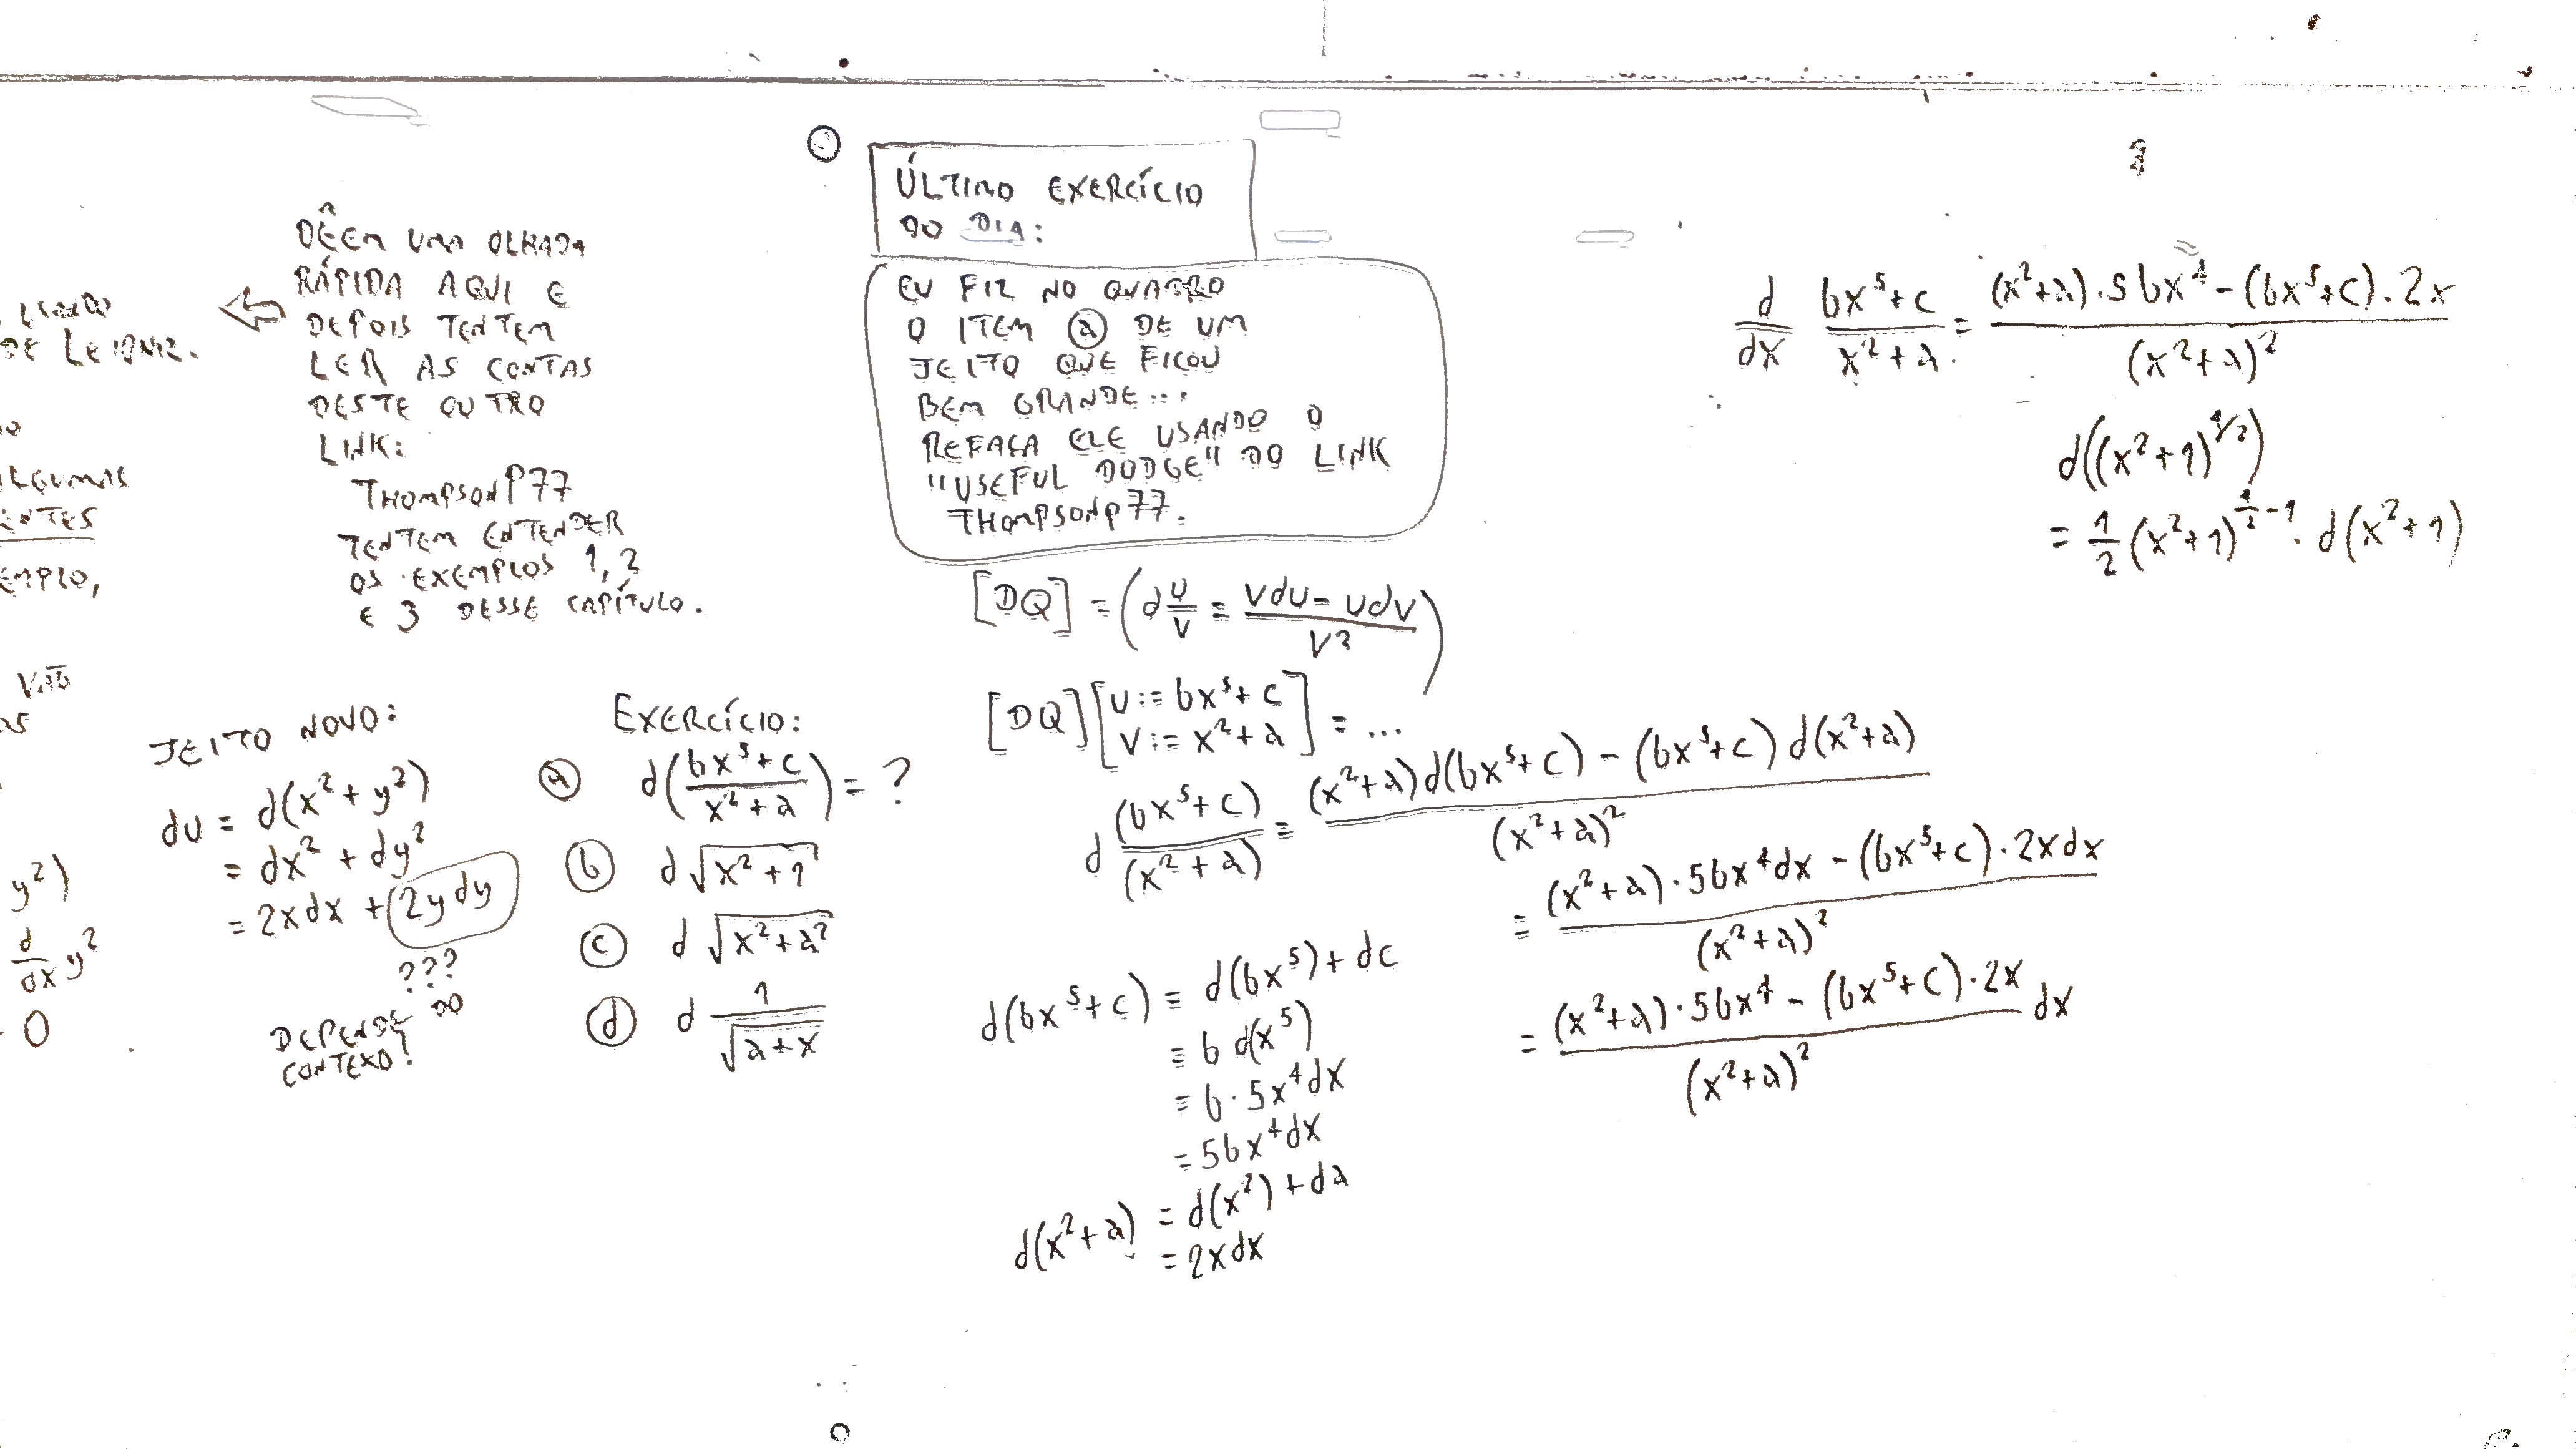 DE LEIBNIZ.
ALGUMAS
ENTES
EMPLO,
VÃO
y²)
d/dx y²
0
DÊEM UMA OLHADA
RÁPIDA AQUI E
DEPOIS TENTEM
LER AS CONTAS
DESTE OUTRO
LINK:
THOMPSONP77
TENTEM ENTENDER
OS EXEMPLOS 1, 2
E 3 DESSE CAPÍTULO.
JEITO NOVO:
du = d(x² + y²)
= dx² + dy²
= 2xdx + 2ydy
???
DEPENDE DO
CONTEXO!
EXERCÍCIO:
(a) d((bx⁵+c)/(x²+a)) = ?
(b) d√(x²+1)
(c) d√(x²+a²)
(d) d 1/√(a+x)
ÚLTIMO EXERCÍCIO
DO DIA:
EU FIZ NO QUADRO
O ITEM (a) DE UM
JEITO QUE FICOU
BEM GRANDE...
REFAÇA ELE USANDO O
"USEFUL DODGE" DO LINK
THOMPSONP77.
[DQ] = (d u/v = (vdu - udv)/v²)
[DQ][u := bx⁵+c
v := x²+a] = ...
d (bx⁵+c)/(x²+a) = ((x²+a)d(bx⁵+c) - (bx⁵+c)d(x²+a))/(x²+a)²
= ((x²+a)·5bx⁴dx - (bx⁵+c)·2xdx)/(x²+a)²
= ((x²+a)·5bx⁴ - (bx⁵+c)·2x)/(x²+a)² dx
d(bx⁵+c) = d(bx⁵) + dc
= b d(x⁵)
= b·5x⁴dx
= 5bx⁴dx
d(x²+a) = d(x²) + da
= 2xdx
d/dx (bx⁵+c)/(x²+a) = ((x²+a)·5bx⁴ - (bx⁵+c)·2x)/(x²+a)²
d((x²+1)^(1/2))
= 1/2 (x²+1)^(1/2 - 1) · d(x²+1)